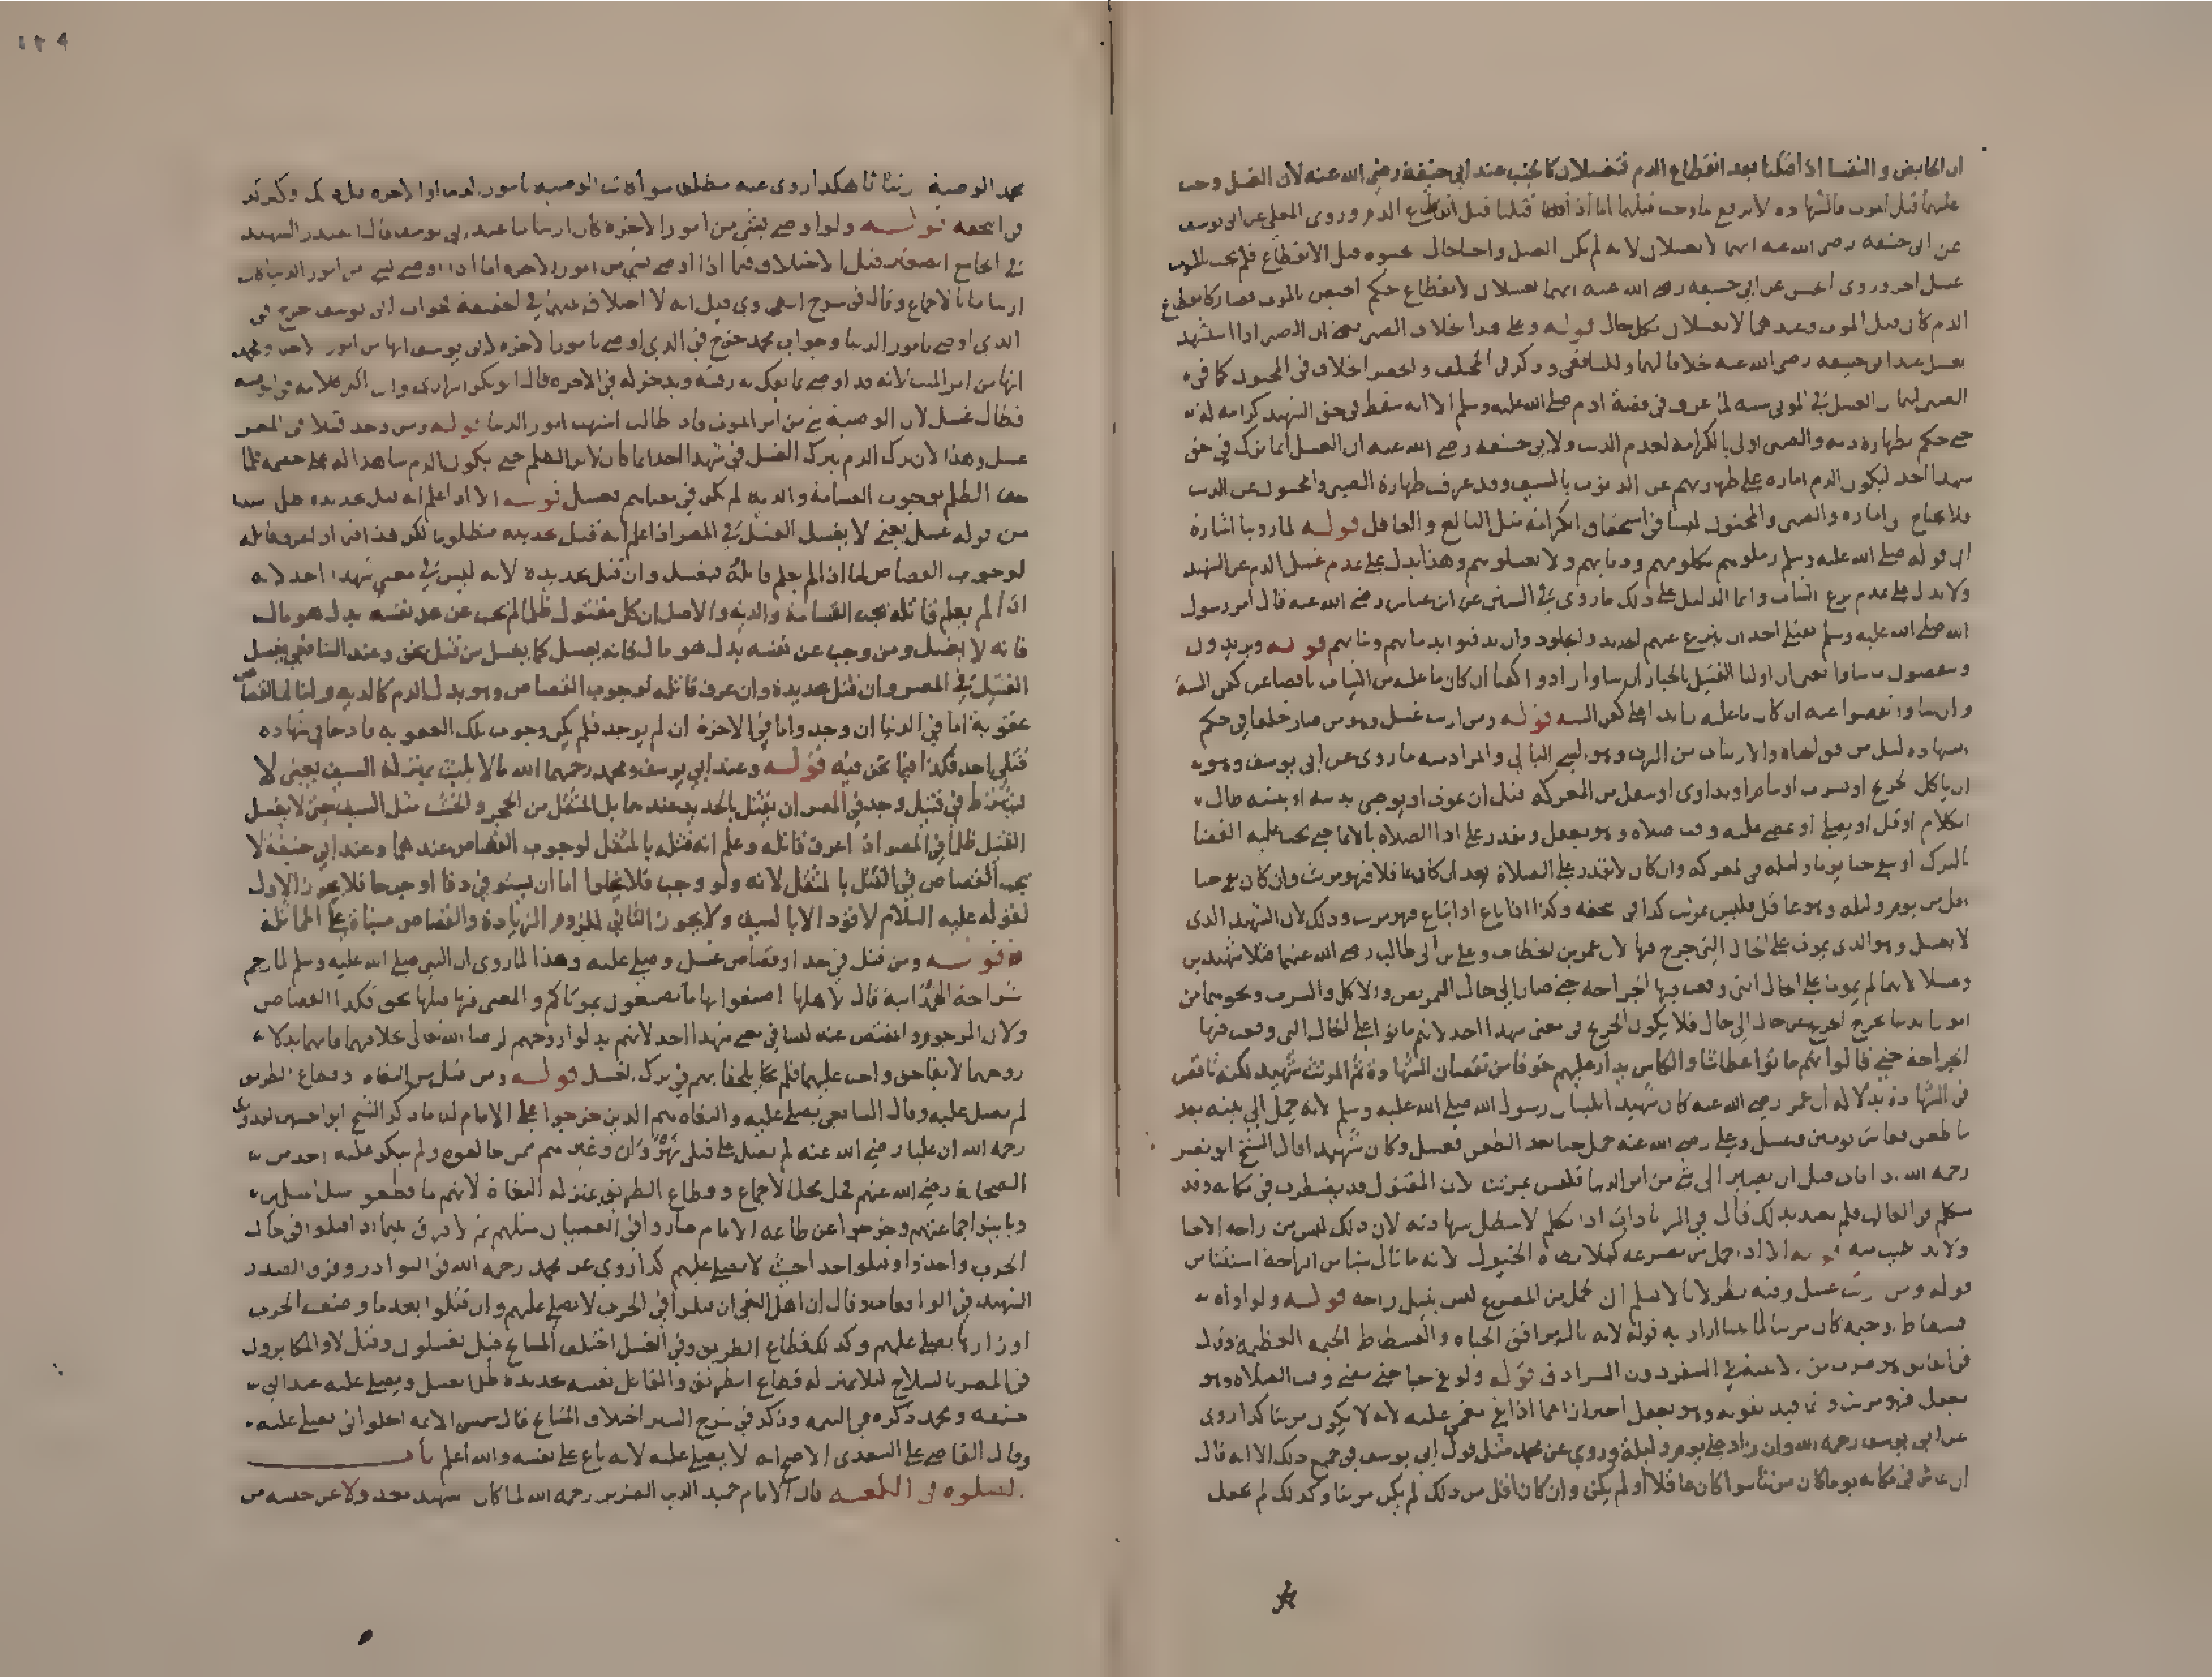 ان الحايض والنفسا اذا قتلتا بعد انقطاع الدم تغسلان كالجنب عند ابي حنيفة رضي الله عنه لان الغسل وجب
عليهما قبل الموت فالشهادة لا ترفع ما وجب قبلها اما اذا قتلتا قبل انقطاع الدم وروى المعلى عن ابي يوسف
عن ابي حنيفه رضي الله عنه انهما لا تغسلان لانه لم يكن الغسل واجبا حال قبل الانقطاع فلم يجب بالموت
غسل اخر وروى الحسن عن ابي حنيفه رضي الله عنه انهما تغسلان لانقطاع حكم الحيض بالموت فصار كانقطاع
الدم كان قبل الموت وعندهما لا تغسلان بكل حال قوله وعلى هذا الخلاف الصبي يعني ان الصبي اذا استشهد
يغسل عند ابي حنيفه رضي الله عنه خلافا لهما وللشافعي وذكر في المختلف والحصر الخلاف في المجنون كما في
الصبي لهما ان الغسل في الموتى سنة لما عرف في قصة ادم صلى الله عليه وسلم الا انه سقط في حق الشهيد كرامه له
حتى حكم بطهارة دمه والصبي اولى بالكرامة لعدم الذنب ولابي حنيفه رضي الله عنه ان الغسل انما ترك في حق
شهدا احد ليكون الدم امارة على طهرهم عن الذنوب بالسيف وقد عرف طهارة الصبي والمجنون عن الذنب
فلا يحتاج الى اماره والصبي والمجنون ليسا في استحقاق الكرامة مثل البالغ والعاقل قوله لما روينا اشارة
الى قوله صلى الله عليه وسلم زملوهم بكلومهم ودمايهم ولا تغسلوهم وهذا يدل على عدم غسل الدم عن الشهيد
ولا يدل على عدم نزع الثياب وانما الدليل على ذلك ما روى في السنن عن ابن عباس رضي الله عنه قال امر رسول
الله صلى الله عليه وسلم بقتلى احد ان ينزع عنهم الحديد والجلود وان يدفنوا بدمايهم وثيابهم قوله ويزيدون
وينقصون ما شاوا يعني ان اوليا القتيل بالخيار ان شاوا زادوا اكفانا ان كان ما عليه من الثياب ناقصا عن كفن السنة
وان شاوا نقصوا عنه ان كان ما عليه زايدا على كفن السنه قوله ومن ارتث غسل وهو من صار خلقا في حكم
الشهاده لنيل مرافق الحياه والارتثاث من الرث وهو الشي البالي والمراد منه ما روى عن ابي يوسف وهو
ان ياكل او يشرب او ينام او يداوى او ينقل من المعركه قيل ان عوف او يوصي بدينه او بينته طال
الكلام او قل او يصلي او يمضي عليه وقت صلاه وهو يعقل ويقدر على ادا الصلاة بالايما حتى يجب عليه القضا
بالترك او بقي حيا يوما وليله في المعركه وان كان لا يقدر على الصلاة بعد ان كان عاقلا فهو مرتث وان كان بقي حيا
اقل من يوم وليله وهو عاقل فليس بمرتث كذا في التحفه وكذا اذا باع او ابتاع فهو مرتث وذلك لان الشهيد الذي
لا يغسل هو الذي يموت على الحال التي جرح فيها لان عمر بن الخطاب وعلي بن ابي طالب رضي الله عنهما قتلا شهيدين
وغسلا لانهما لم يموتا على الحال التي وقعت فيها الجراحه حتى صارا الى حال التمريض والاكل والشرب ونحوهما من
امور الدنيا يخرج الجريح من حال الى حال فلا يكون الجريح في معنى شهدا احد لانهم ماتوا على الحال التي وقعت فيها
الجراحة حتى قالوا انهم ماتوا عطاشا والكاس يدار عليهم خوفا من نقصان الشهادة ثم المرتث شهيد لكنه ناقص
في الشهادة بدلاله ان عمر رضي الله عنه كان شهيدا بلسان رسول الله صلى الله عليه وسلم لانه حمل الى بيته بعد
ما طعن فعاش يومين وغسل وعلي رضي الله عنه حمل حيا بعد الطعن فغسل وكان شهيدا قال الشيخ ابو نصر
رحمه الله اذا مات قبل ان يصير الى شي من امر الدنيا فليس بمرتث لان المقتول قد يضطرب في مكانه وقد
يتكلم في الغالب فلم يعتد بذلك قال في الزيادات اذا تكلم لا يبطل شهادته لان ذلك ليس من راحه الاحيا
قوله الا اذا حمل من مصرعه كيلا تطاه الخيول لانه ما نال شيئا من الراحة استثنا من
قوله ومن ارتث غسل وفيه نظر لانا لا نسلم ان الحمل من المصرع ليس بنيل راحه قوله ولو اواه
فسطاط او خيمه كان مرتثا لما بينا اراد به قوله لانه نال مرافق الحياه والفسطاط الخيمه العظيمة وقال
في الفايق هو ضرب من الابنية في السفر دون السرادق قوله ولو بقي حيا حتى مضى وقت الصلاه وهو
يعقل فهو مرتث وانما قيد بقوله وهو يعقل احترازا عما اذا بقي مغمى عليه لانه لا يكون مرتثا كذا روى
عن ابي يوسف رحمه الله وان زاد على يوم وليلة وروي عن محمد مثل قول ابي يوسف في جميع ذلك الا انه قال
ان عاش في مكانه يوما كان مرتثا سوا كان عاقلا او لم يكن وان كان اقل من ذلك لم يكن مرتثا وكذلك لم يجعل
١٢٩
محمد الوصية ارتثاثا هكذا روى عنه مطلقا سوا كانت الوصيه بامور الدنيا او الاخره قليله كن وكثيرته
في التحفه قوله ولو اوصى بشي من امور الاخرة كان ارتثاثا عند ابي يوسف قال الصدر الشهيد
في الجامع الصغير قيل الاختلاف فيما اذا اوصى بشي من امور الاخره اما اذا اوصى بشي من امور الدنيا كان
ارتثاثا بالاجماع وقال في شرح الطحاوي قيل انه لا اختلاف بينهما في الحقيقة فجواب ابي يوسف خرج في
الذي اوصى بامور الدنيا وجواب محمد خرج في الذي اوصى بامور الاخره لابي يوسف انها من امور الاحيا ولمحمد
انها من امر الميت لانه قد اوصى بما يفك به رقبته ويدخر له في الاخره قال ابو بكر الرازي وان اكثر كلامه في الوصيه
فطال غسل لان الوصية شي من امر الموت فاذا طالت اشبهت امور الدنيا قوله ومن وجد قتيلا في المصر
غسل وهذا لان ترك الدم بترك الغسل في شهدا احد انما كان لاثر الظلم حتى يكون الدم شاهدا له على خصمه فلما
خف الظلم بوجوب القسامة والديه لم يكن في معناهم فغسل قوله الا اذا علم انه قتل بحديده ظلما استثنا
من قوله غسل يعني لا يغسل القتيل في المصر اذا علم انه قتل بحديده مظلوما لكن هذا اذا عرف قاتله
لوجوب القصاص اما اذا لم يعلم قاتله فيغسل وان قتل بحديدة لانه ليس في معنى شهدا احد لانه
اذا لم يعلم قاتله تجب القسامة والديه والاصل ان كل مقتول ظلما لم يجب عن نفسه بدل هو مال
فانه لا يغسل ومن وجب عن نفسه بدل هو مال فانه يغسل كما يغسل من قتل بحق وعند الشافعي يغسل
القتيل في المصر وان قتل بحديدة وان عرف قاتله لوجوب القصاص وهو بدل الدم كالديه ولنا ان القصاص
عقوبة اما في الدنيا ان وجد واما في الاخرة ان لم يوجد فلم يكن وجوب تلك العقوبه قادحا في شهادة
قتلى احد فكذا فيما نحن فيه قوله وعند ابي يوسف ومحمد رحمهما الله ما لا يلبث بمنزلة السيف يعني لا
يشترط في قتيل وجد في المصر ان يقتل بالحديد عندهما بل المثقل من الحجر والخشب مثل السيف حتى لا يغسل
القتيل ظلما في المصر اذا عرف قاتله وعلم انه قتله بالمثقل لوجوب القصاص عندهما وعند ابي حنيفة لا
يجب القصاص في القتل بالمثقل لانه ولو وجب فلا يخلوا اما ان يستوفى دقا او جرحا فلا يجوز الاول
لقوله عليه السلام لا قود الا بالسيف ولا يجوز الثاني للزوم الزيادة والقصاص مبناه على المماثلة
قوله ومن قتل في حد او قصاص غسل وصلي عليه وهذا لما روى ان النبي صلى الله عليه وسلم لما رجم
شراحة الهمدانية قال لاهلها اصنعوا بها ما تصنعون بموتاكم والمعنى فيها قتلها بحق فكذا القصاص
ولان المرجوم والمقتص عنه ليسا في معنى شهدا احد لانهم بذلوا ارواحهم لرضا الله تعالى بخلافهما فانهما بذلا
روحهما لايفا حق واجب عليهما فلم يلحقا بهم في ترك الغسل قوله ومن قتل من البغاه وقطاع الطريق
لم يصل عليه وقال الشافعي يصلى عليه والبغاه هم الذين خرجوا على الامام لنا ما ذكر الشيخ ابو الحسين القدوري
رحمه الله ان عليا رضي الله عنه لم يصل على قتلى نهروان وغيرهم ممن خالفوه ولم ينكر عليه احد من
الصحابة رضي الله عنهم فحل محل الاجماع وقطاع الطريق بمنزلة البغاة لانهم ما قطعوا سبل المسلمين
وباينوا جماعتهم وخرجوا عن طاعه الامام صاروا في العصيان مثلهم ثم لا فرق بينما اذا قتلوا في حال
الحرب واخذوا وقتلوا حيث لا يصلى عليهم كذا روي عن محمد رحمه الله في النوادر وفرق الصدر
الشهيد في الواقعات وقال ان اهل البغي ان قتلوا في الحرب لا يصلى عليهم وان قتلوا بعدما وضعت الحرب
اوزارها يصلى عليهم وكذلك قطاع الطريق وفي الغسل اختلف المشايخ قيل يغسلون وقيل لا والمكابرون
في المصر بالسلاح ليلا بمنزلة قطاع الطريق والقاتل نفسه بحديدة ظلما يغسل ويصلى عليه عند ابي
حنيفه ومحمد ذكره في التتمه وذكر في شرح السير اختلاف المشايخ قال شمس الايمه الحلواني يصلى عليه
وقال القاضي علي السغدي الاصح انه لا يصلى عليه لانه باغ على نفسه والله اعلم باب
الصلوه في الكعبه قال الامام حميد الدين الضرير رحمه الله لما كان